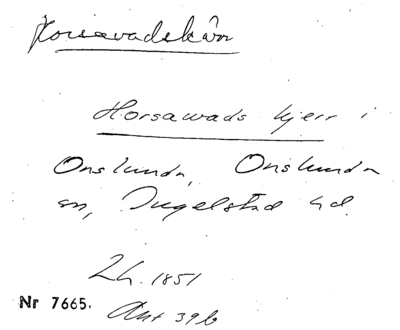 Horsavadskärr
Horsawads kjerr i
Onslunda, Onslunda
sn, Ingelstad hd.
Lh. 1851
Nr 7665. Ant 39b